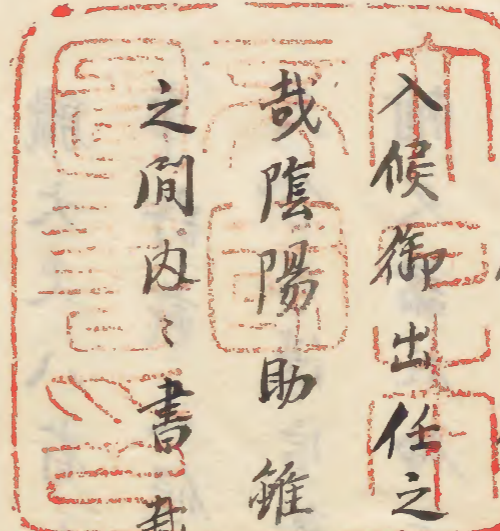 入候御出任之
哉陰陽助雖
之間内〻書載